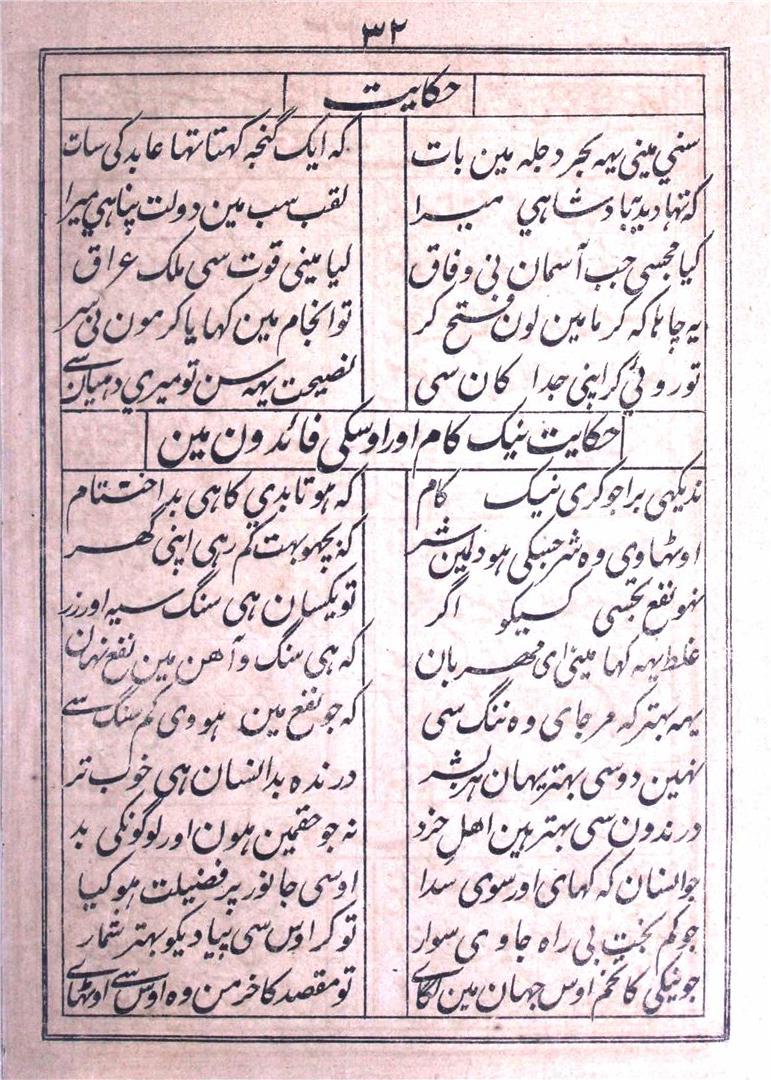 ۳۲
حکایت
سنی مینی یہہ بجر دجلہ مین بات کہ ایک گنجہ کہتا تہا عابد کی سات
کہ تہا دبدبہ بادشاہی میرا لقب سب مین دولت پناہی میرا
کیا مجسی جب آسمان نی وفاق لیا مینی قوت سی ملک عراق
یہ چاہا کہ کرمامین لون فتح کر تو انجام مین کہایا کرمون نی سر
تو روئی کر اپنی جدا کان سی نصیحت یہہ سن تو میری دہیان سے
حکایت نیک کام اور اوسکی فائدون مین
ندیکہی برا جو کری نیک کام کہ ہوتا بدی کا ہی بد اختتام
اوٹہاوی وہ شر جسکی ہو دلمین شر کہ بچھو بہت کم رہی اپنی گھر
نہو نفع تجسی کسیکو اگر تو یکسان ہی سنگ سیہ اور زر
غلط یہہ کہا مینی ای مہربان کہ ہی سنگ و آہن مین نفع نہان
یہہ بہتر کہ مر جای وہ ننگ سی کہ جو نفع مین ہووی کم سنگ سے
نہین دوسی بہتر یہان ہر بشر درندہ بد انسان ہی خوب تر
درندون سی بہتر ہین اہل خرد نہ جو حقمین ہون اور لوگونکی بد
جو انسان کہ کہای اور سوی سدا اوسی جانور پر فضیلت ہو کیا
جو کم بخت بی راہ جاوہی سوار تو کر اوس سی پیادیکو بہتر شمار
جو نیکی کا تخم اوس جہان مین لگاے تو مقصد کا خرمن وہ اوس سے اوٹہاے